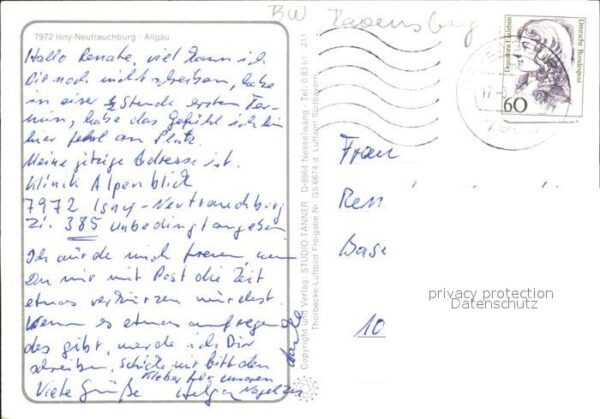 7972 Isny-Neutrauchburg / Allgäu
BW Ravensburg
Hallo Renate, viel kann ich
Dir noch nicht schreiben, habe
in einer ½ Stunde ersten Ter-
min, habe das Gefühl ich bin
hier fehl am Platz.
Meine jetzige Adresse ist.
Klinik Alpenblick
7972 Isny-Neutrauchburg
Zi. 385 unbedingt angeben
Ich würde mich freuen, wenn
Du mir mit Post die Zeit
etwas verkürzen würdest.
Wenn es etwas aufregen
des gibt, werde ich Dir
schreiben, schicke mir bitte den
Kleber für unseren
Viele Grüße Helga
Copyright und Verlag: STUDIO TANNER D-8964 Nesselwang · Tel. 0 83 61 - 211
Thorbecke-Luftbild Freigabe Nr. GS 6674 d. Luftamt Südbayern
Deutsche Bundespost
60
17.
Frau
Ren
Base
10
privacy protection
Datenschutz